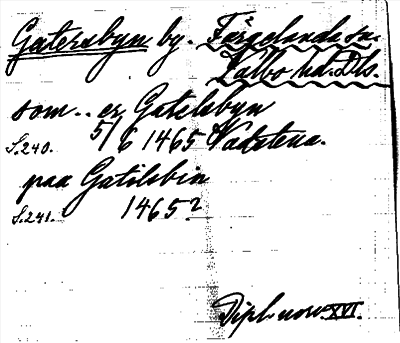 Gatersbyn by. Färgelanda sn.
Valbo hd. Dls.
som .. er Gatilsbyn
S. 240. 5/6 1465 Vadstena.
paa Gatilsbin
S. 241. 1465?
Dipl. norv. XVI.